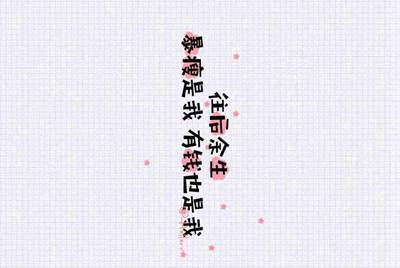 往后余生
暴瘦是我 有钱也是我